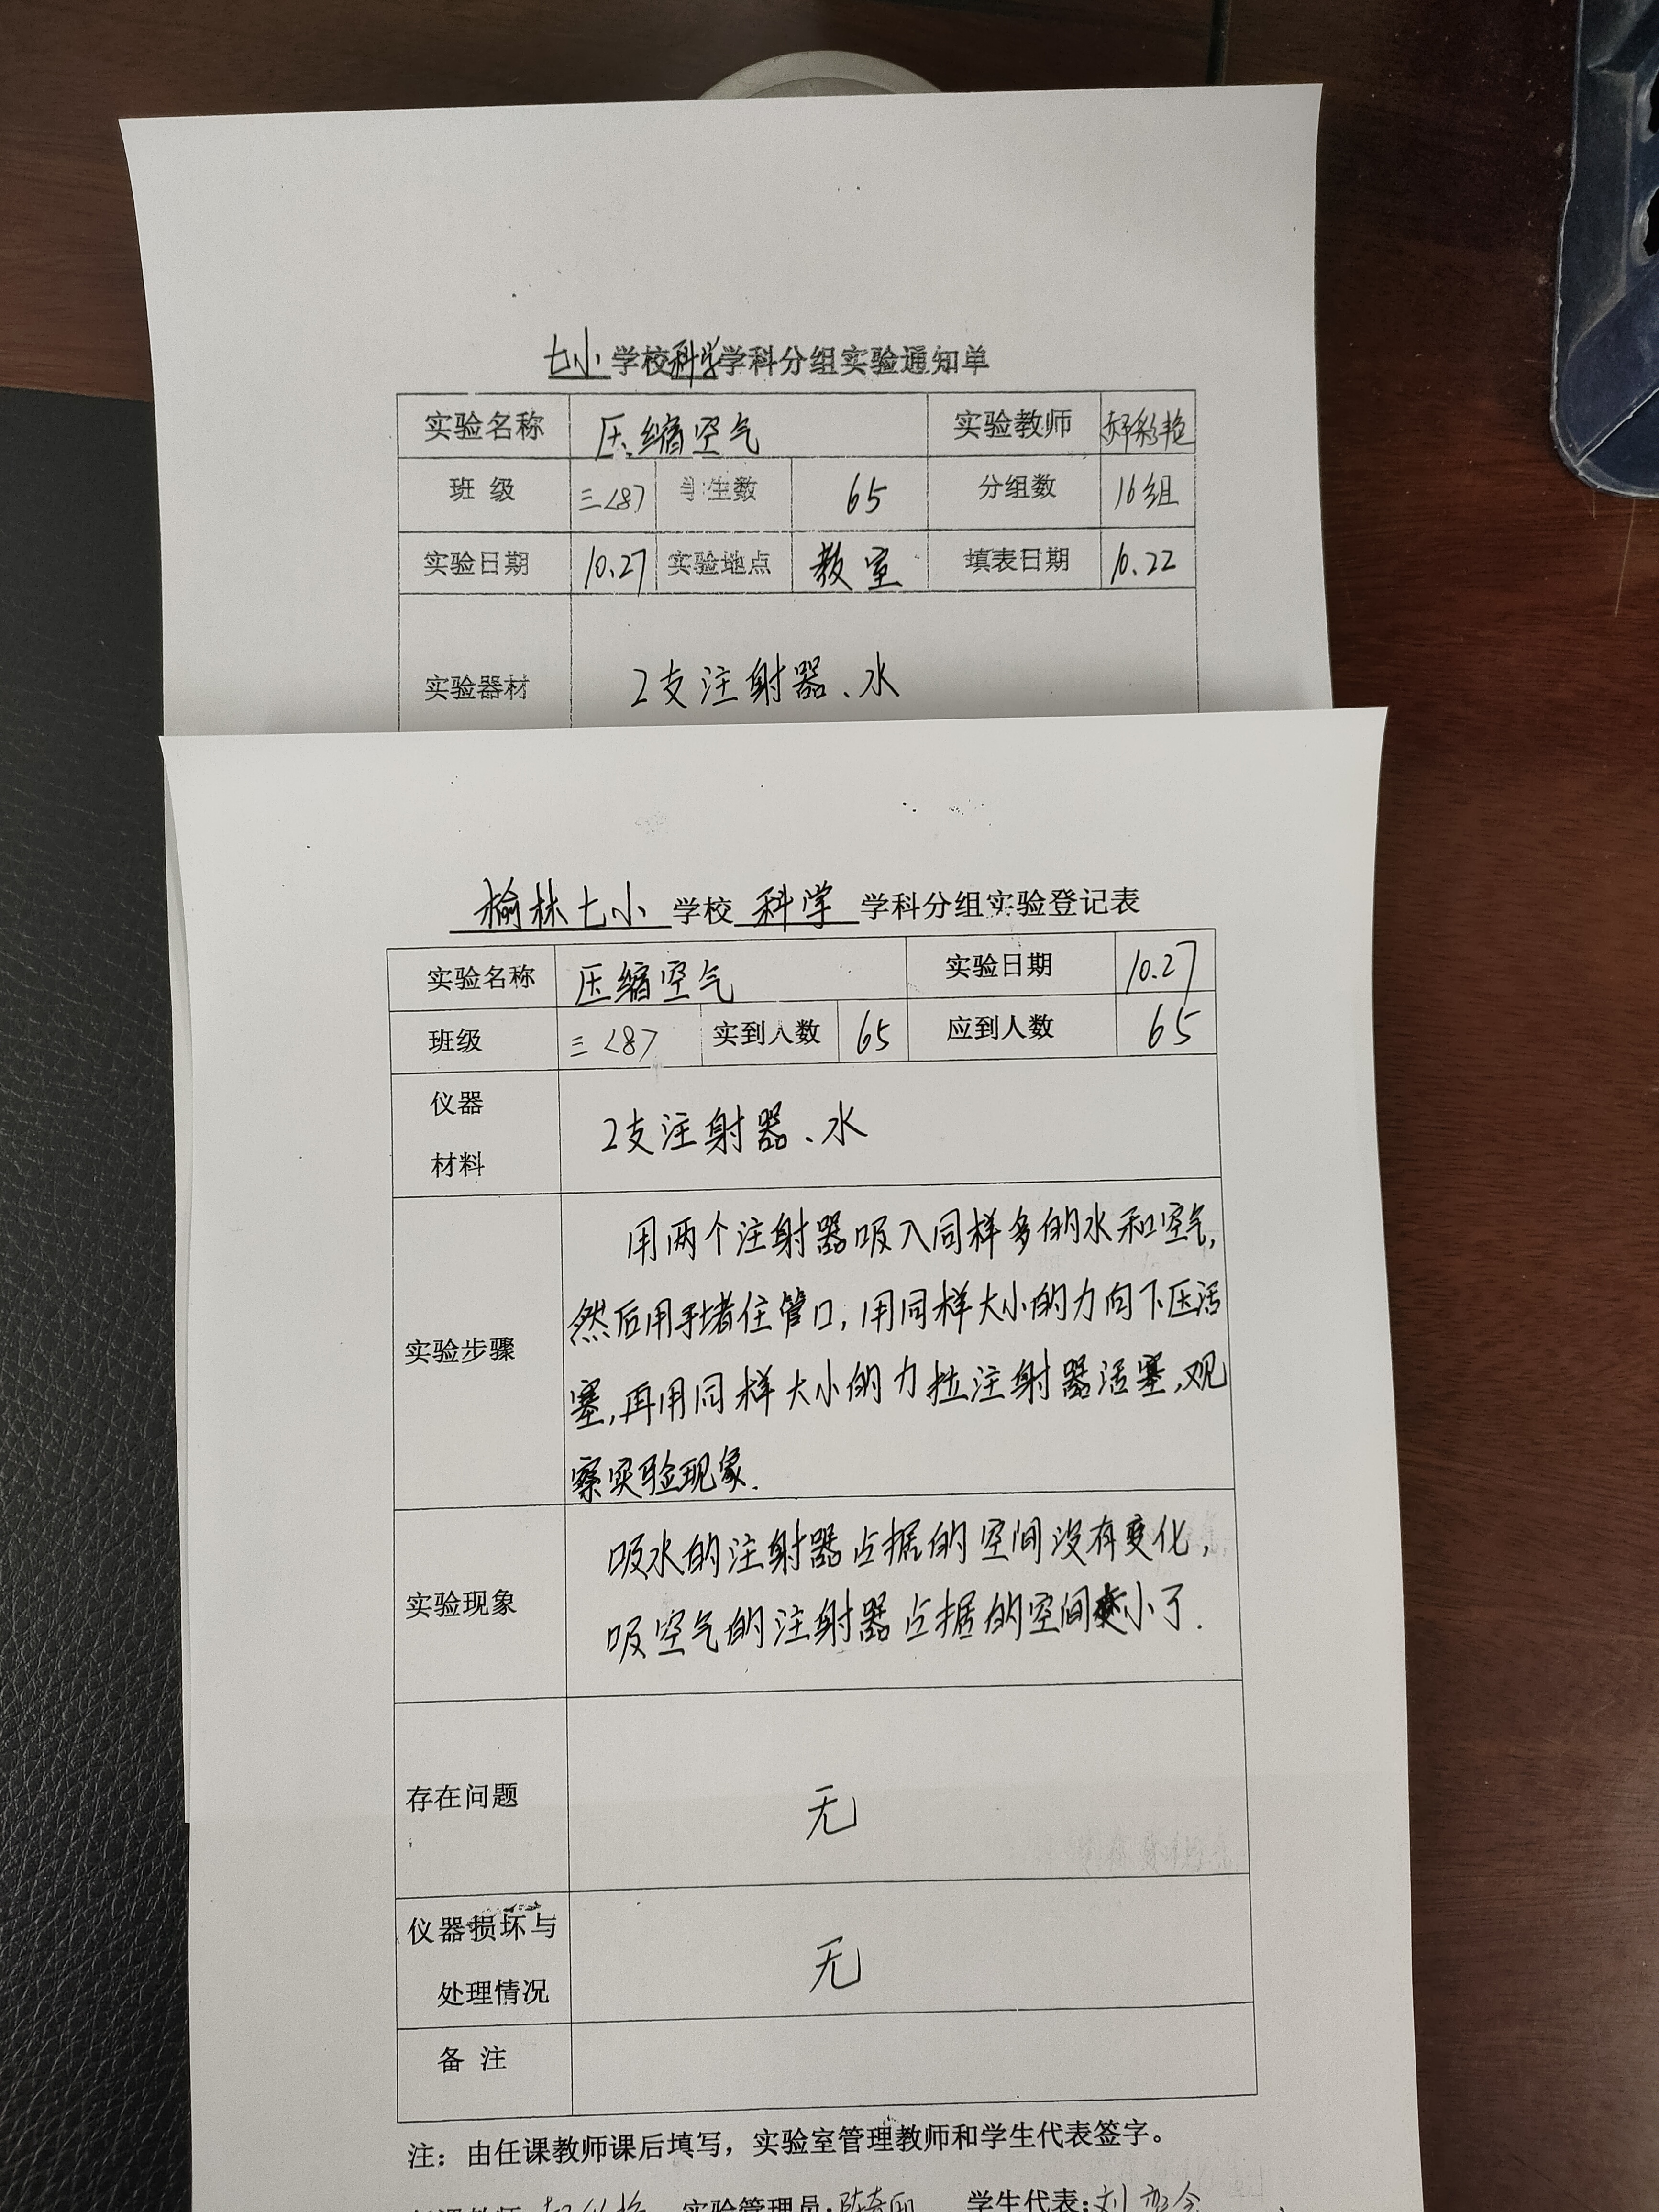 七小学校科学学科分组实验通知单
实验名称 压缩空气 实验教师 郝彩艳
班 级 三<8> 学生数 65 分组数 16组
实验日期 10.27 实验地点 教室 填表日期 10.22
实验器材 2支注射器、水
榆林七小 学校 科学 学科分组实验登记表
实验名称 压缩空气 实验日期 10.27
班级 三<8> 实到人数 65 应到人数 65
仪器
材料 2支注射器、水
实验步骤 用两个注射器吸入同样多的水和空气,
然后用手堵住管口,用同样大小的力向下压活
塞,再用同样大小的力拉注射器活塞,观
察实验现象.
实验现象 吸水的注射器占据的空间没有变化,
吸空气的注射器占据的空间变小了.
存在问题 无
仪器损坏与
处理情况 无
备 注
注：由任课教师课后填写，实验室管理教师和学生代表签字。
实验管理员: 学生代表:刘